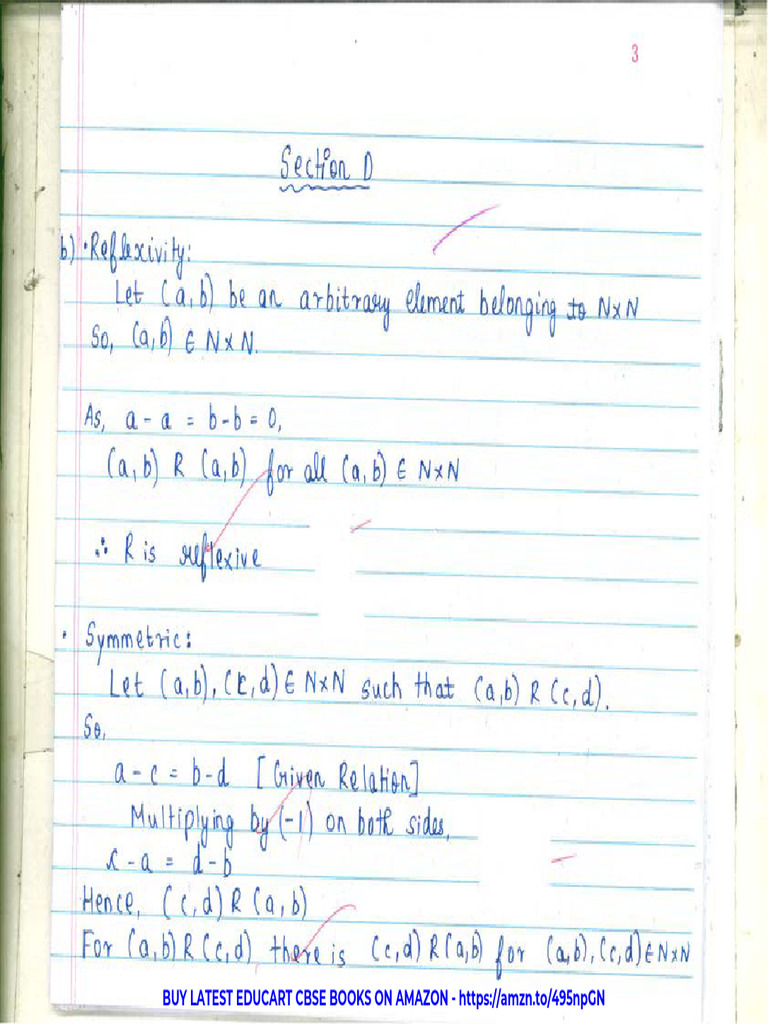 3
Section D
b) • Reflexivity:
Let (a,b) be an arbitrary element belonging to N×N
So, (a,b) ∈ N×N.
As, a - a = b - b = 0,
(a,b) R (a,b) for all (a,b) ∈ N×N
∴ R is reflexive
• Symmetric:
Let (a,b), (c,d) ∈ N×N such that (a,b) R (c,d).
So,
a - c = b - d [Given Relation]
Multiplying by (-1) on both sides,
c - a = d - b
Hence, (c,d) R (a,b)
For (a,b) R (c,d) there is (c,d) R (a,b) for (a,b), (c,d) ∈ N×N
BUY LATEST EDUCART CBSE BOOKS ON AMAZON - https://amzn.to/495npGN